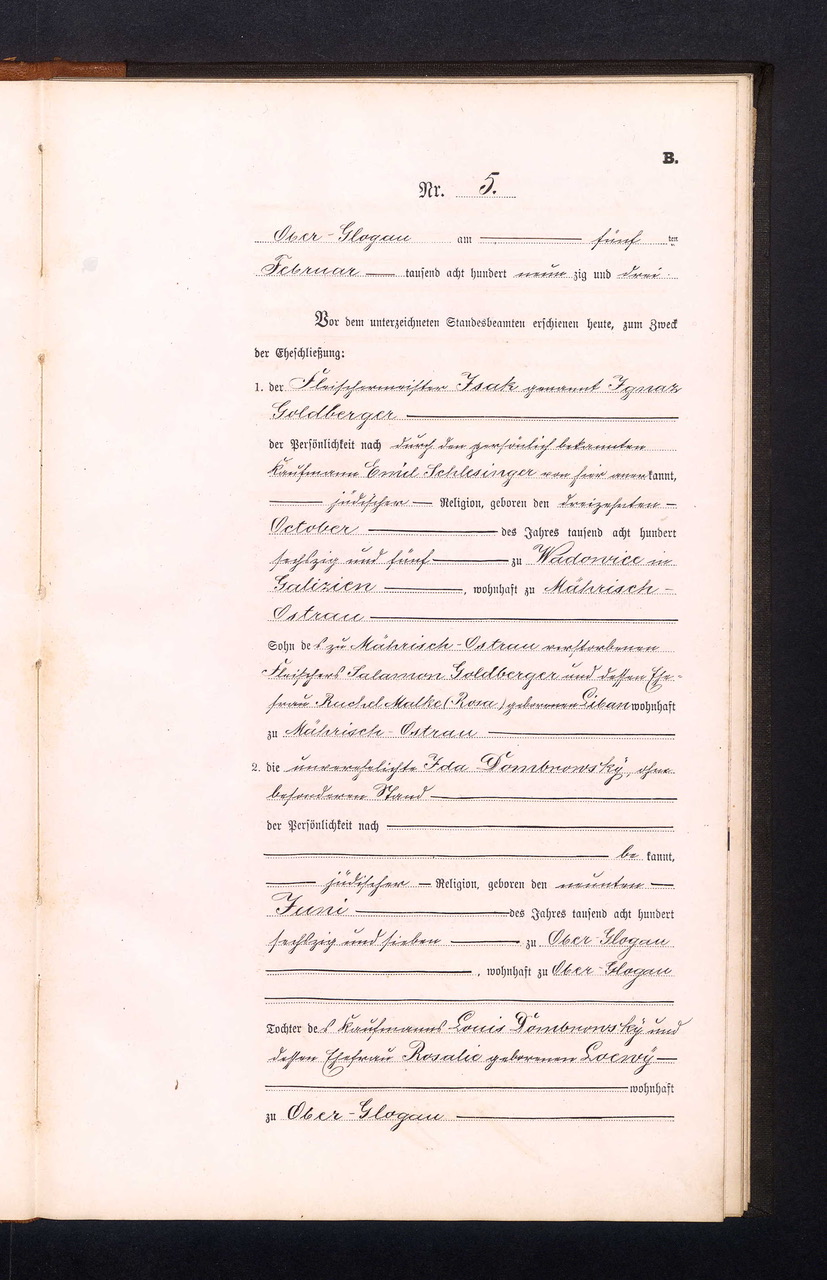 B.
Nr. 5.
Ober-Glogau am fünf ten
Februar tausend acht hundert neun zig und drei.
Vor dem unterzeichneten Standesbeamten erschienen heute, zum Zweck
der Eheschließung:
1. der Fleischermeister Isak genannt Ignaz
Goldberger
der Persönlichkeit nach durch den persönlich bekannten
Kaufmann Emil Schlesinger von hier aner kannt,
jüdischer Religion, geboren den dreizehnten
October des Jahres tausend acht hundert
sechszig und fünf zu Wadowice in
Galizien, wohnhaft zu Mährisch-
Ostrau
Sohn des zu Mährisch-Ostrau verstorbenen
Fleischers Salamon Goldberger und dessen Ehe-
frau Ruchel Malke (Rosa) geborenen Liban wohnhaft
zu Mährisch-Ostrau
2. die unverehelichte Ida Dombrowsky, ohne
besonderen Stand
der Persönlichkeit nach
be kannt,
jüdischer Religion, geboren den neunten
Juni des Jahres tausend acht hundert
sechszig und sieben zu Ober-Glogau
, wohnhaft zu Ober-Glogau
Tochter des Kaufmanns Louis Dombrowsky und
dessen Ehefrau Rosalie geborenen Loewy
wohnhaft
zu Ober-Glogau